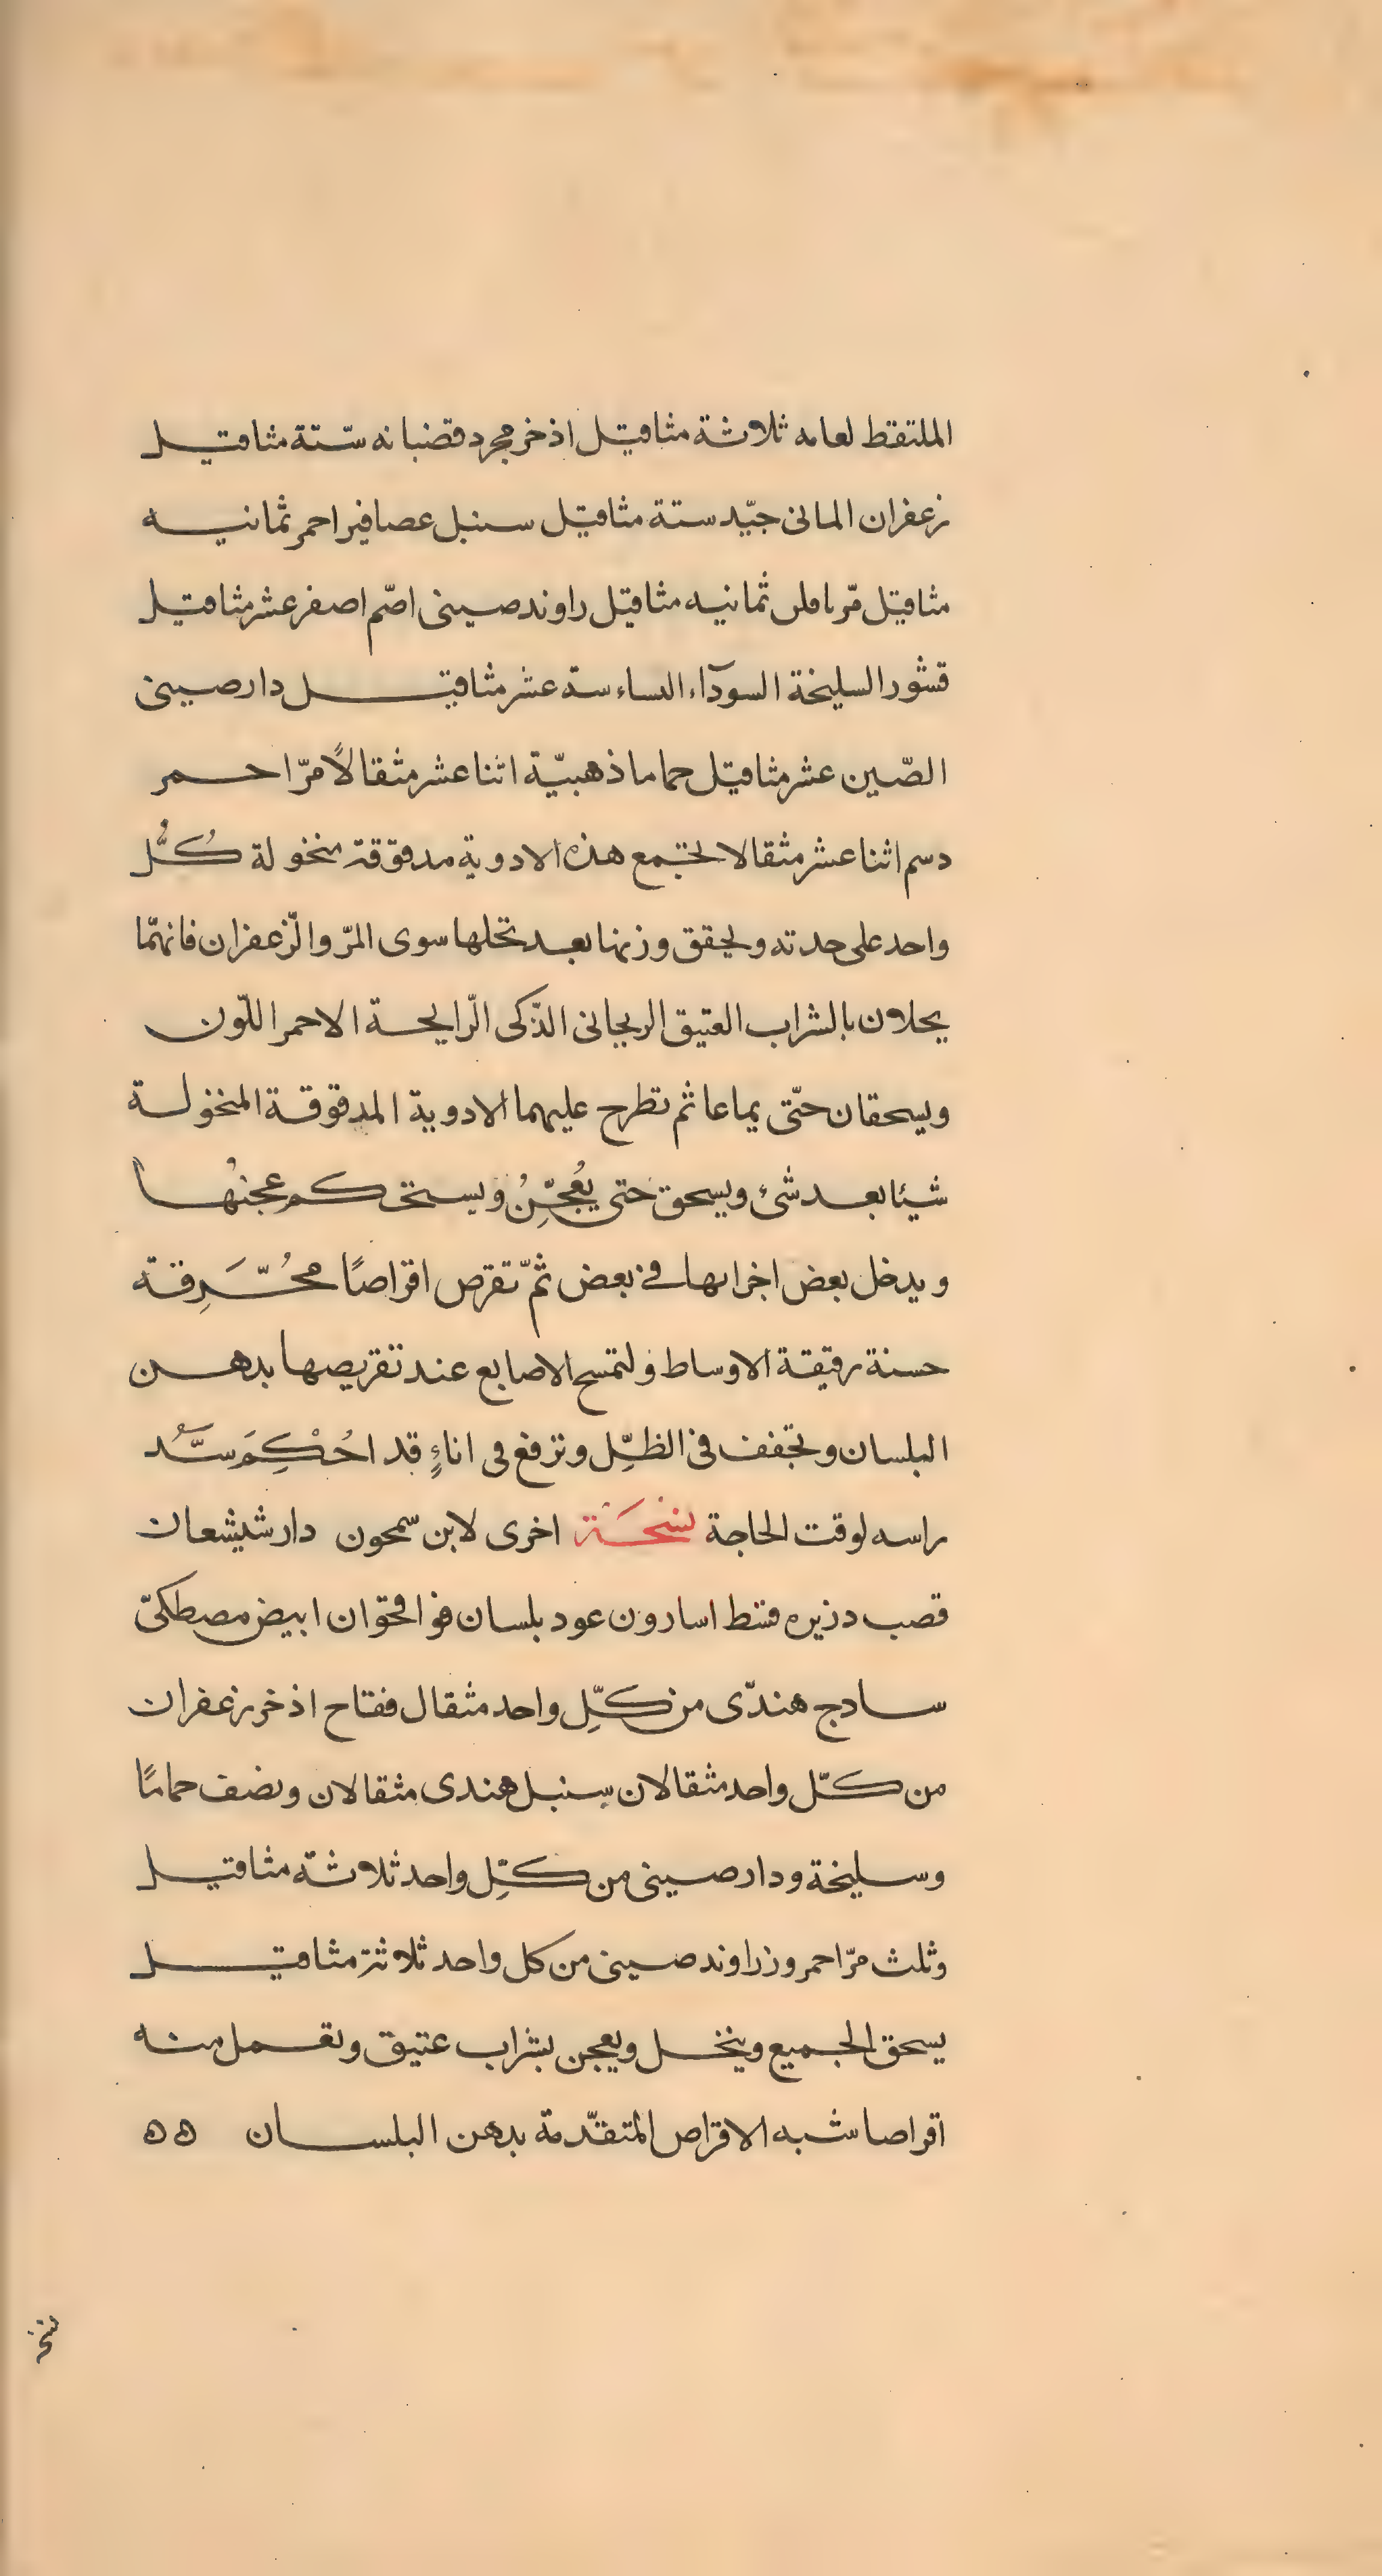 الملتقط لعامه ثلاثة مثاقيل اذخر مجرد قضبانه ستّة مثاقيل
زعفران المانى جيّد ستة مثاقيل سنبل عصافير احمر ثمانيه
مثاقيل مرّ ثمانيه مثاقيل راوند صينى اصّم اصفر عشر مثاقيل
قشور السليخة السودآء ستة عشر مثاقيل دارصينى
الصّين عشر مثاقيل حماما ذهبيّة اثنا عشر مثقالاً مرّ احمر
دسم اثنا عشر مثقالا تجتمع هذه الادوية مدقوقة منخولة كُلُّ
واحد على حدته ويحقق وزنها بعد نخلها سوى المرّ والزّعفران فانهمّا
يحلان بالشراب العتيق الريحانى الذّكى الرّايحة الاحمر اللّون
ويسحقان حتّى يماعا ثم تطرح عليهما الادوية المدقوقة المنخولة
شيئا بعد شئ ويسحق حتى يُعجِّنُ ويستحكم عجنُها
ويدخل بعض اجزايها فى بعض ثمّ تقرص اقراصًا محُّرَقة
حسنة رقيقة الاوساط ولتمسح الاصابع عند تقريصها بدهن
البلسان وتجفف فى الظلِّ وترفع فى اناءٍ قد احُكِمَ سَّدُ
راسه لوقت الحاجة نسُخَة اخرى لابن سمحون دارشيشعان
قصب دزيره قسط اسارون عود بلسان فو اقحوان ابيض مصطكىّ
سادج هندّى من كلِّ واحد مثقال فقاح اذخر زعفران
من كلّ واحد مثقالان سنبل هندى مثقالان ونصف حمامًا
وسليخة ودارصينى من كلِّ واحد ثلاثة مثاقيل
وثلث مرّ احمر وزراوند صينى من كل واحد ثلاثة مثاقيل
يسحق الجميع وينخل ويعجن بشراب عتيق وتعمل منه
اقراصا شبه الاقراص المتقدّمة بدهن البلسان ه ه